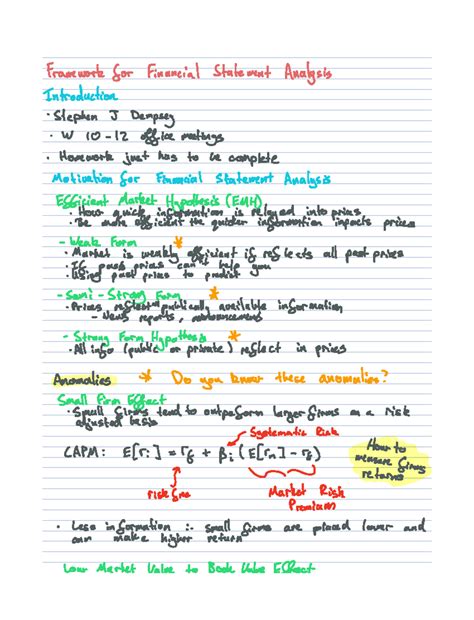 Framework for Financial Statement Analysis
Introduction
· Stephen J Dempsey
· W 10-12 office meetings
· Homework just has to be complete
Motivation for Financial Statement Analysis
Efficient Market Hypothesis (EMH)
· How quick information is relayed into prices
· The more efficient the quicker information impacts prices
- Weak Form *
· Market is weakly efficient if reflects all past prices
· If past prices can't help you
· Using past prices to predict
- Semi-Strong Form *
· Prices reflect publically available information
- News reports, announcements
- Strong Form Hypothesis *
· All info (public or private) reflect in prices
Anomalies * Do you know these anomalies?
Small Firm Effect
· Small firms tend to outperform larger firms on a risk
adjusted basis
Systematic Risk
CAPM: E[ri] = rf + βi (E[rm] - rf)
How to
measure firms
returns
risk free
Market Risk
Premium
· Less information ∴ small firms are placed lower and
can make higher return
Low Market Value to Book Value Effect